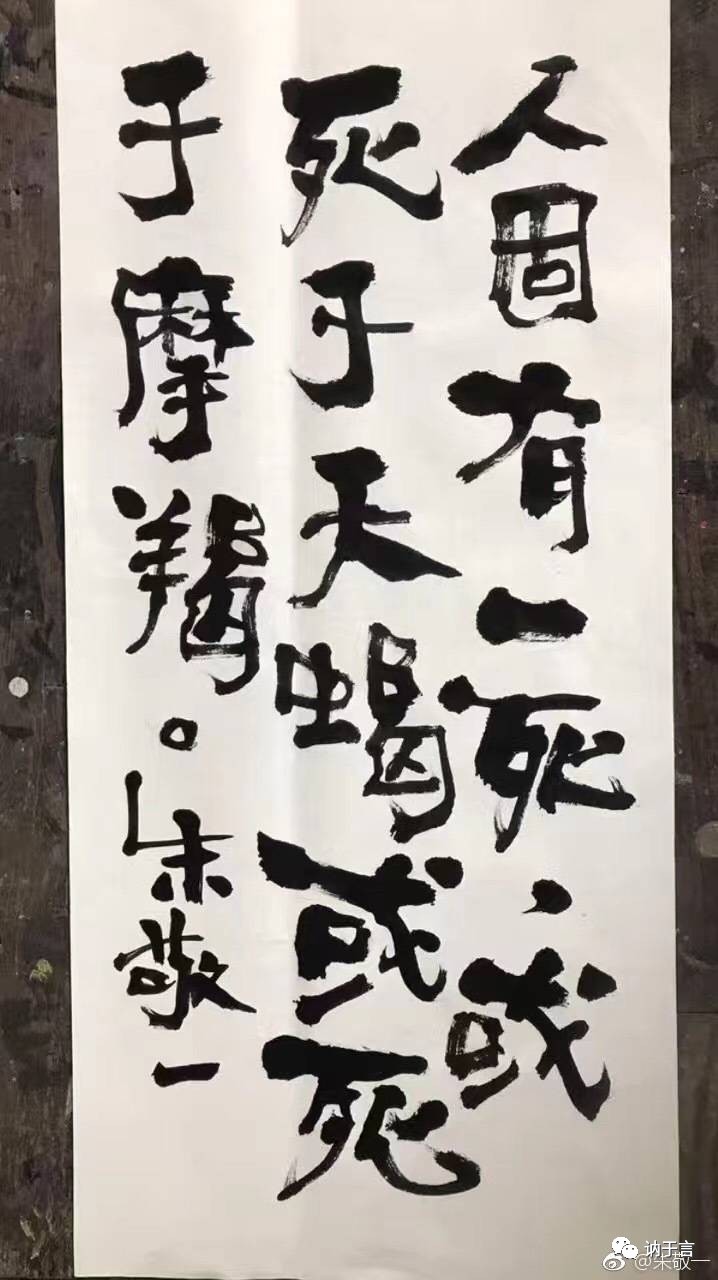 人固有一死，或
死于天蝎或死
于摩羯。朱敬一
讷于言
@朱敬一